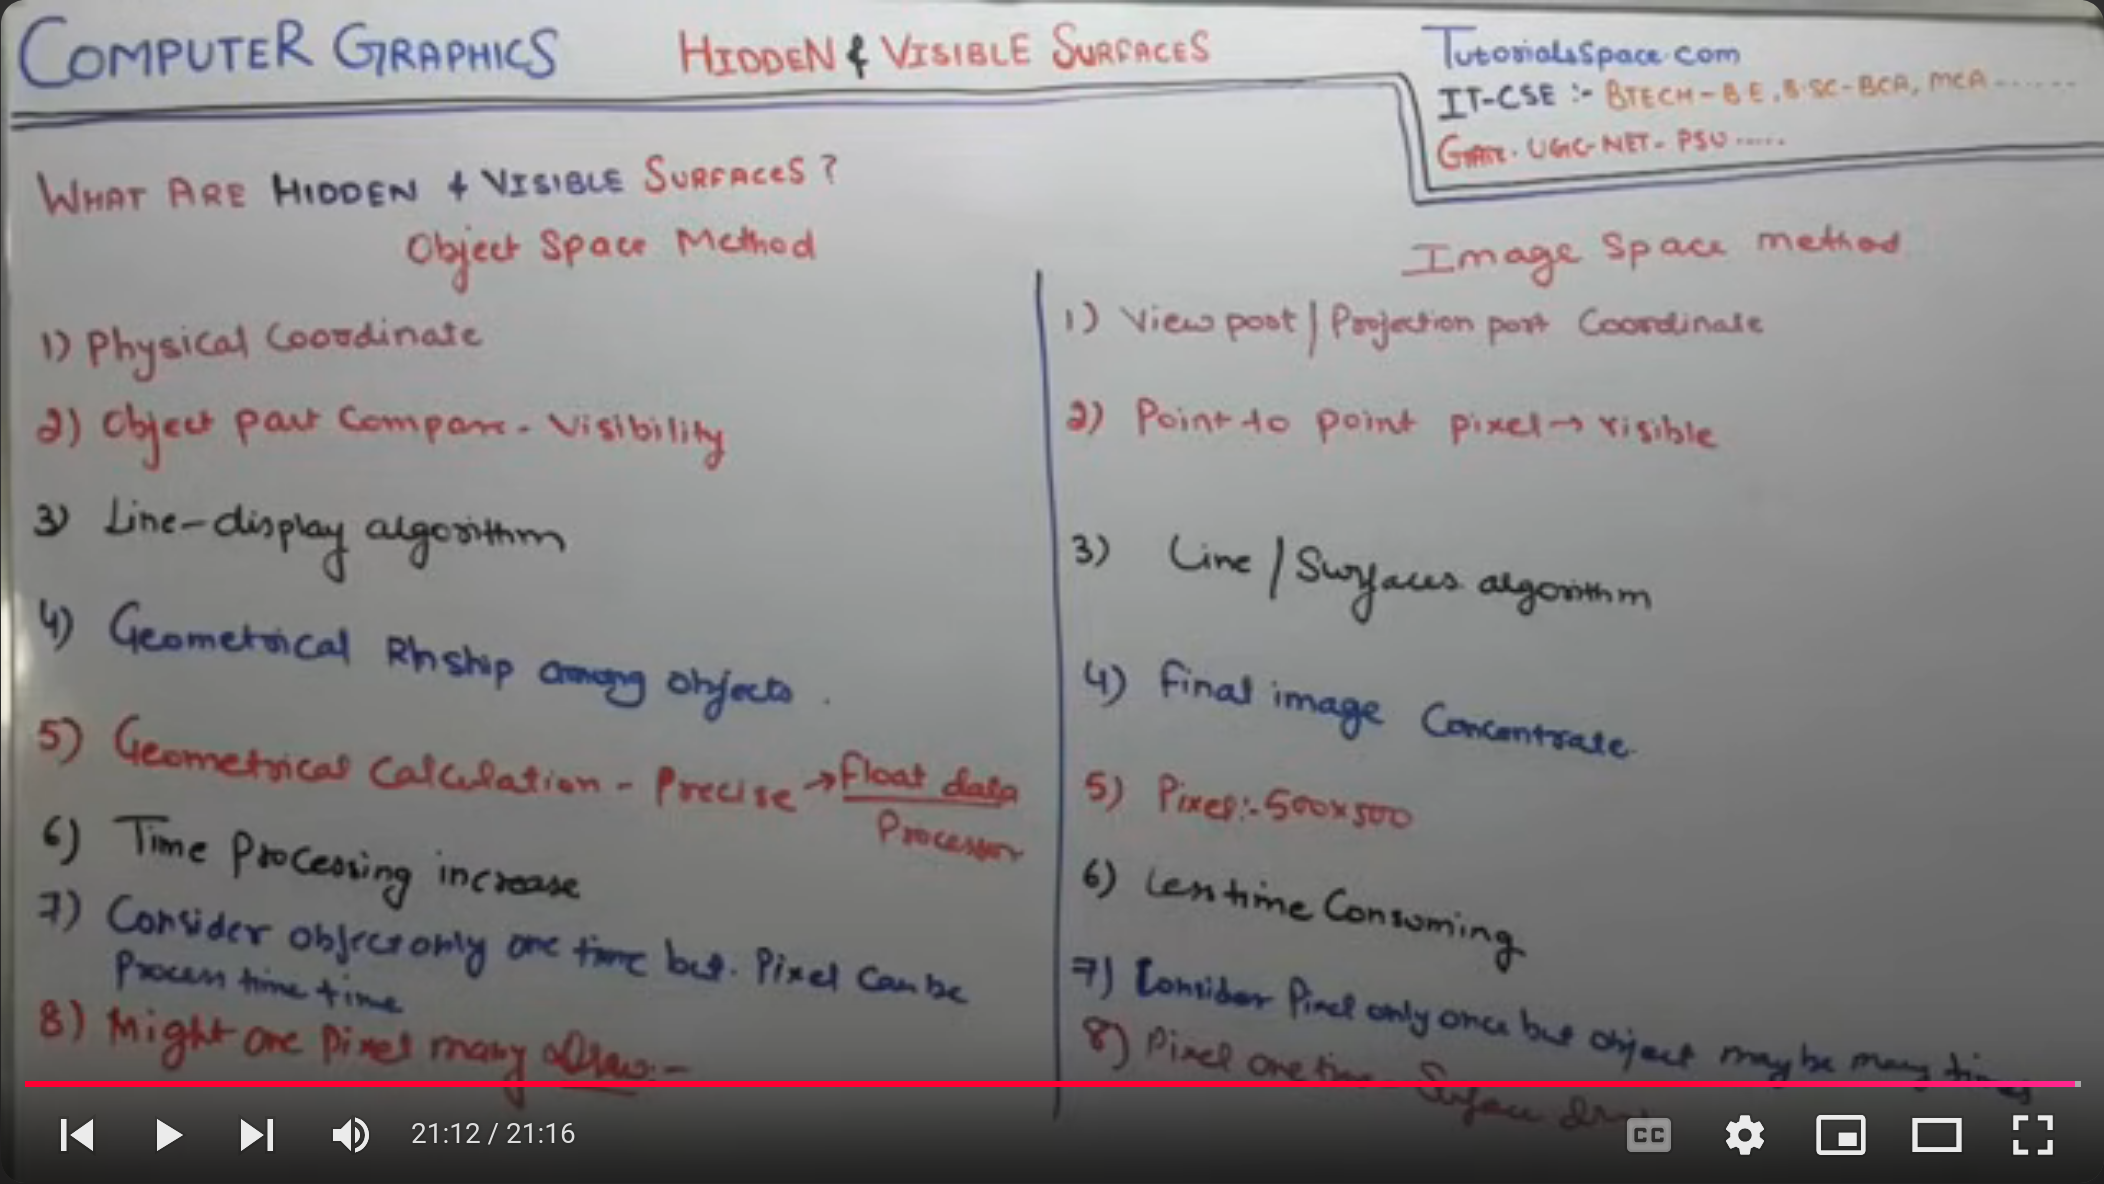 COMPUTER GRAPHICS
HIDDEN & VISIBLE SURFACES
TutorialsSpace.com
IT-CSE :- BTECH-BE, B.SC-BCA, MCA ......
GATE. UGC-NET- PSU .....
WHAT ARE HIDDEN & VISIBLE SURFACES?
Object Space Method
1) Physical Coordinate
2) Object part Compare - Visibility
3) Line-display algorithm
4) Geometrical Rhship among objects.
5) Geometrical Calculation - Precise → float data
Processor
6) Time Processing increase
7) Consider object only one time but. Pixel Can be
Process time time
8) Might one Pixel many draw:-
Image Space method
1) View port / Projection port Coordinate
2) Point to point pixel → visible
3) Line / Surfaces algorithm
4) Final image Concentrate.
5) Pixel:- 500x500
6) Less time Consuming
7) Consider Pixel only once but object may be many times
8) Pixel one time Surface
21:12 / 21:16
CC